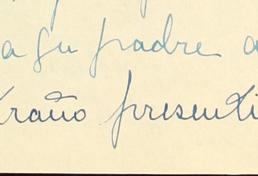 a su padre a
traño presenti